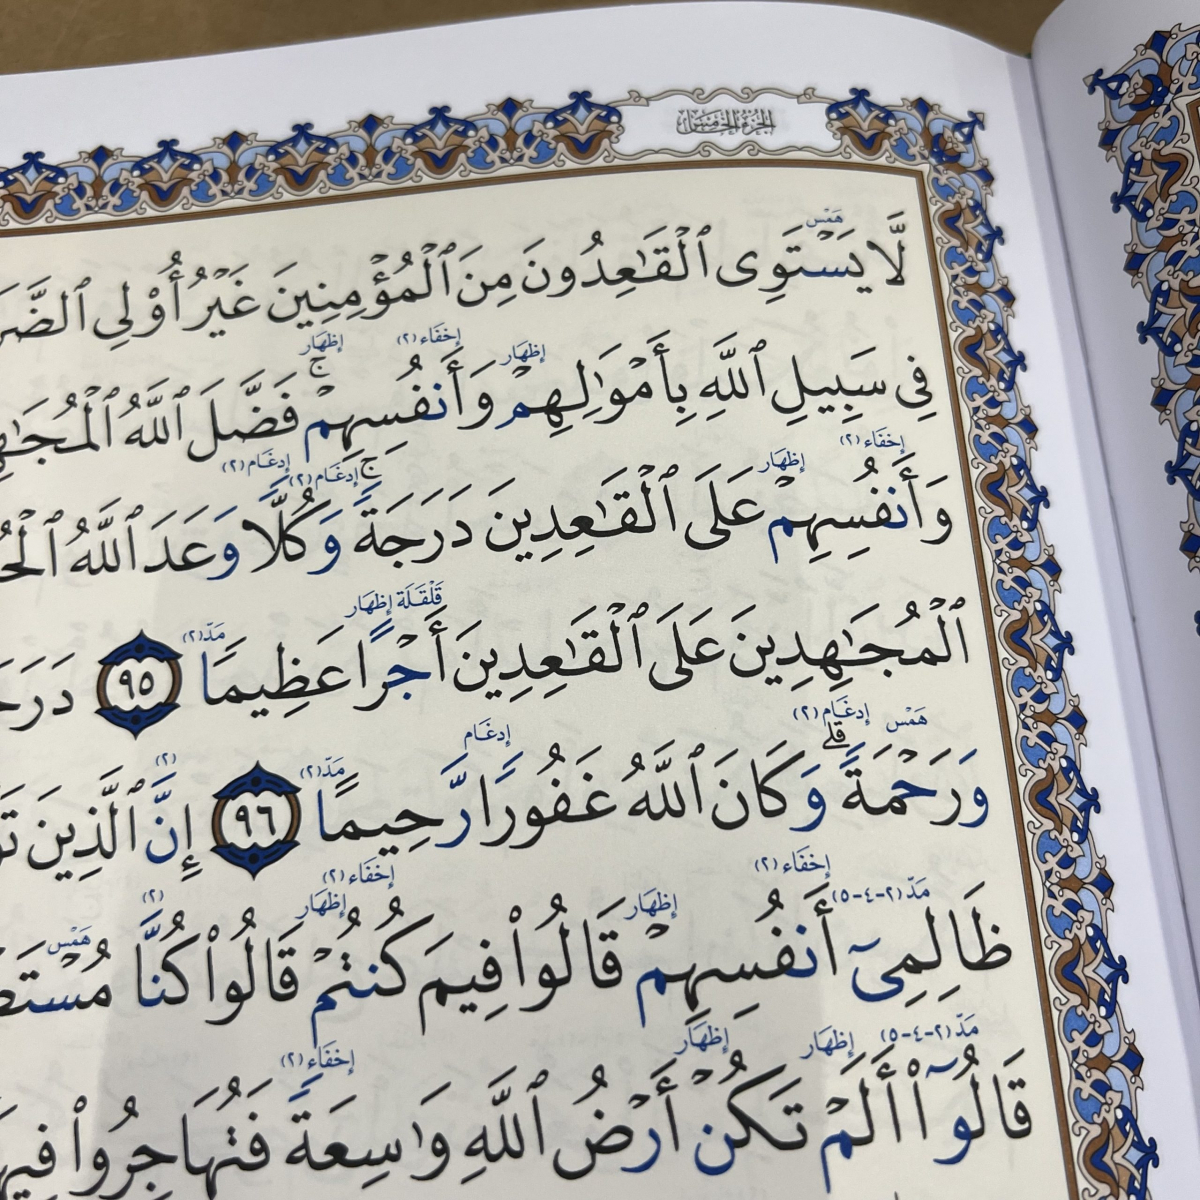 الجزء الخامس
هَمْس
لَّا يَسْتَوِى ٱلْقَٰعِدُونَ مِنَ ٱلْمُؤْمِنِينَ غَيْرُ أُو۟لِى
إظهَار إخفَاء (٢) إظهَار
فِى سَبِيلِ ٱللَّهِ بِأَمْوَٰلِهِمْ وَأَنفُسِهِمْ ۚ فَضَّلَ ٱللَّهُ
إخفَاء (٢) إظهَار إدغَام (٢) إدغَام (٢)
وَأَنفُسِهِمْ عَلَى ٱلْقَٰعِدِينَ دَرَجَةً ۚ وَكُلًّا وَعَدَ ٱللَّهُ
قَلْقَلَة إظهَار مَدّ (٢)
ٱلْمُجَٰهِدِينَ عَلَى ٱلْقَٰعِدِينَ أَجْرًا عَظِيمًا ٩٥
هَمْس إدغَام (٢) إدغَام مَدّ (٢) (٢)
وَرَحْمَةً ۚ وَكَانَ ٱللَّهُ غَفُورًا رَّحِيمًا ٩٦ إِنَّ ٱلَّذِينَ
مَدّ (٢-٤-٥) إخفَاء (٢) إظهَار إخفَاء (٢) إظهَار (٢) هَمْس
ظَالِمِىٓ أَنفُسِهِمْ قَالُوا۟ فِيمَ كُنتُمْ ۖ قَالُوا۟ كُنَّا
مَدّ (٢-٤-٥) إظهَار إظهَار إخفَاء (٢)
قَالُوٓا۟ أَلَمْ تَكُنْ أَرْضُ ٱللَّهِ وَٰسِعَةً فَتُهَاجِرُوا۟